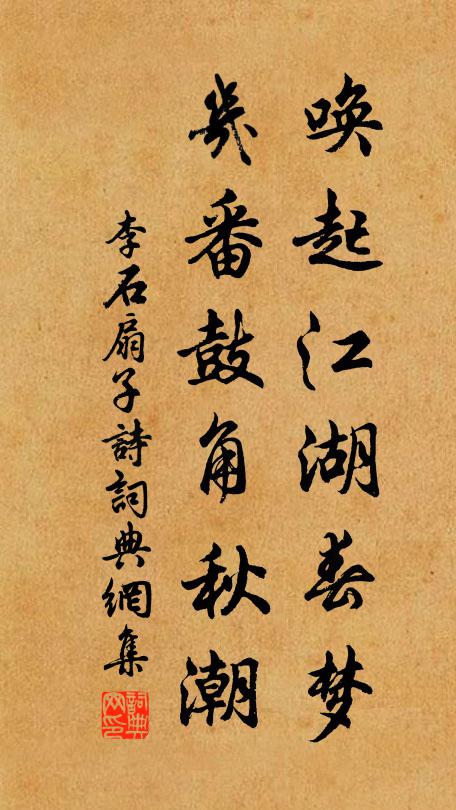 唤起江湖春梦
几番鼓角秋潮
李石扇子詩詞典網集
詞典網印